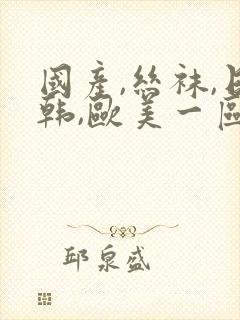 國產,絲袜,日
韩,歐美一區
邱泉盛